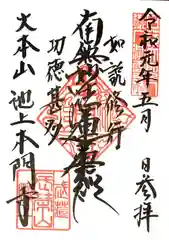 令和元年五月 日参拝
如説修行
南無妙法蓮華経
功徳甚多
大本山 池上本門寺